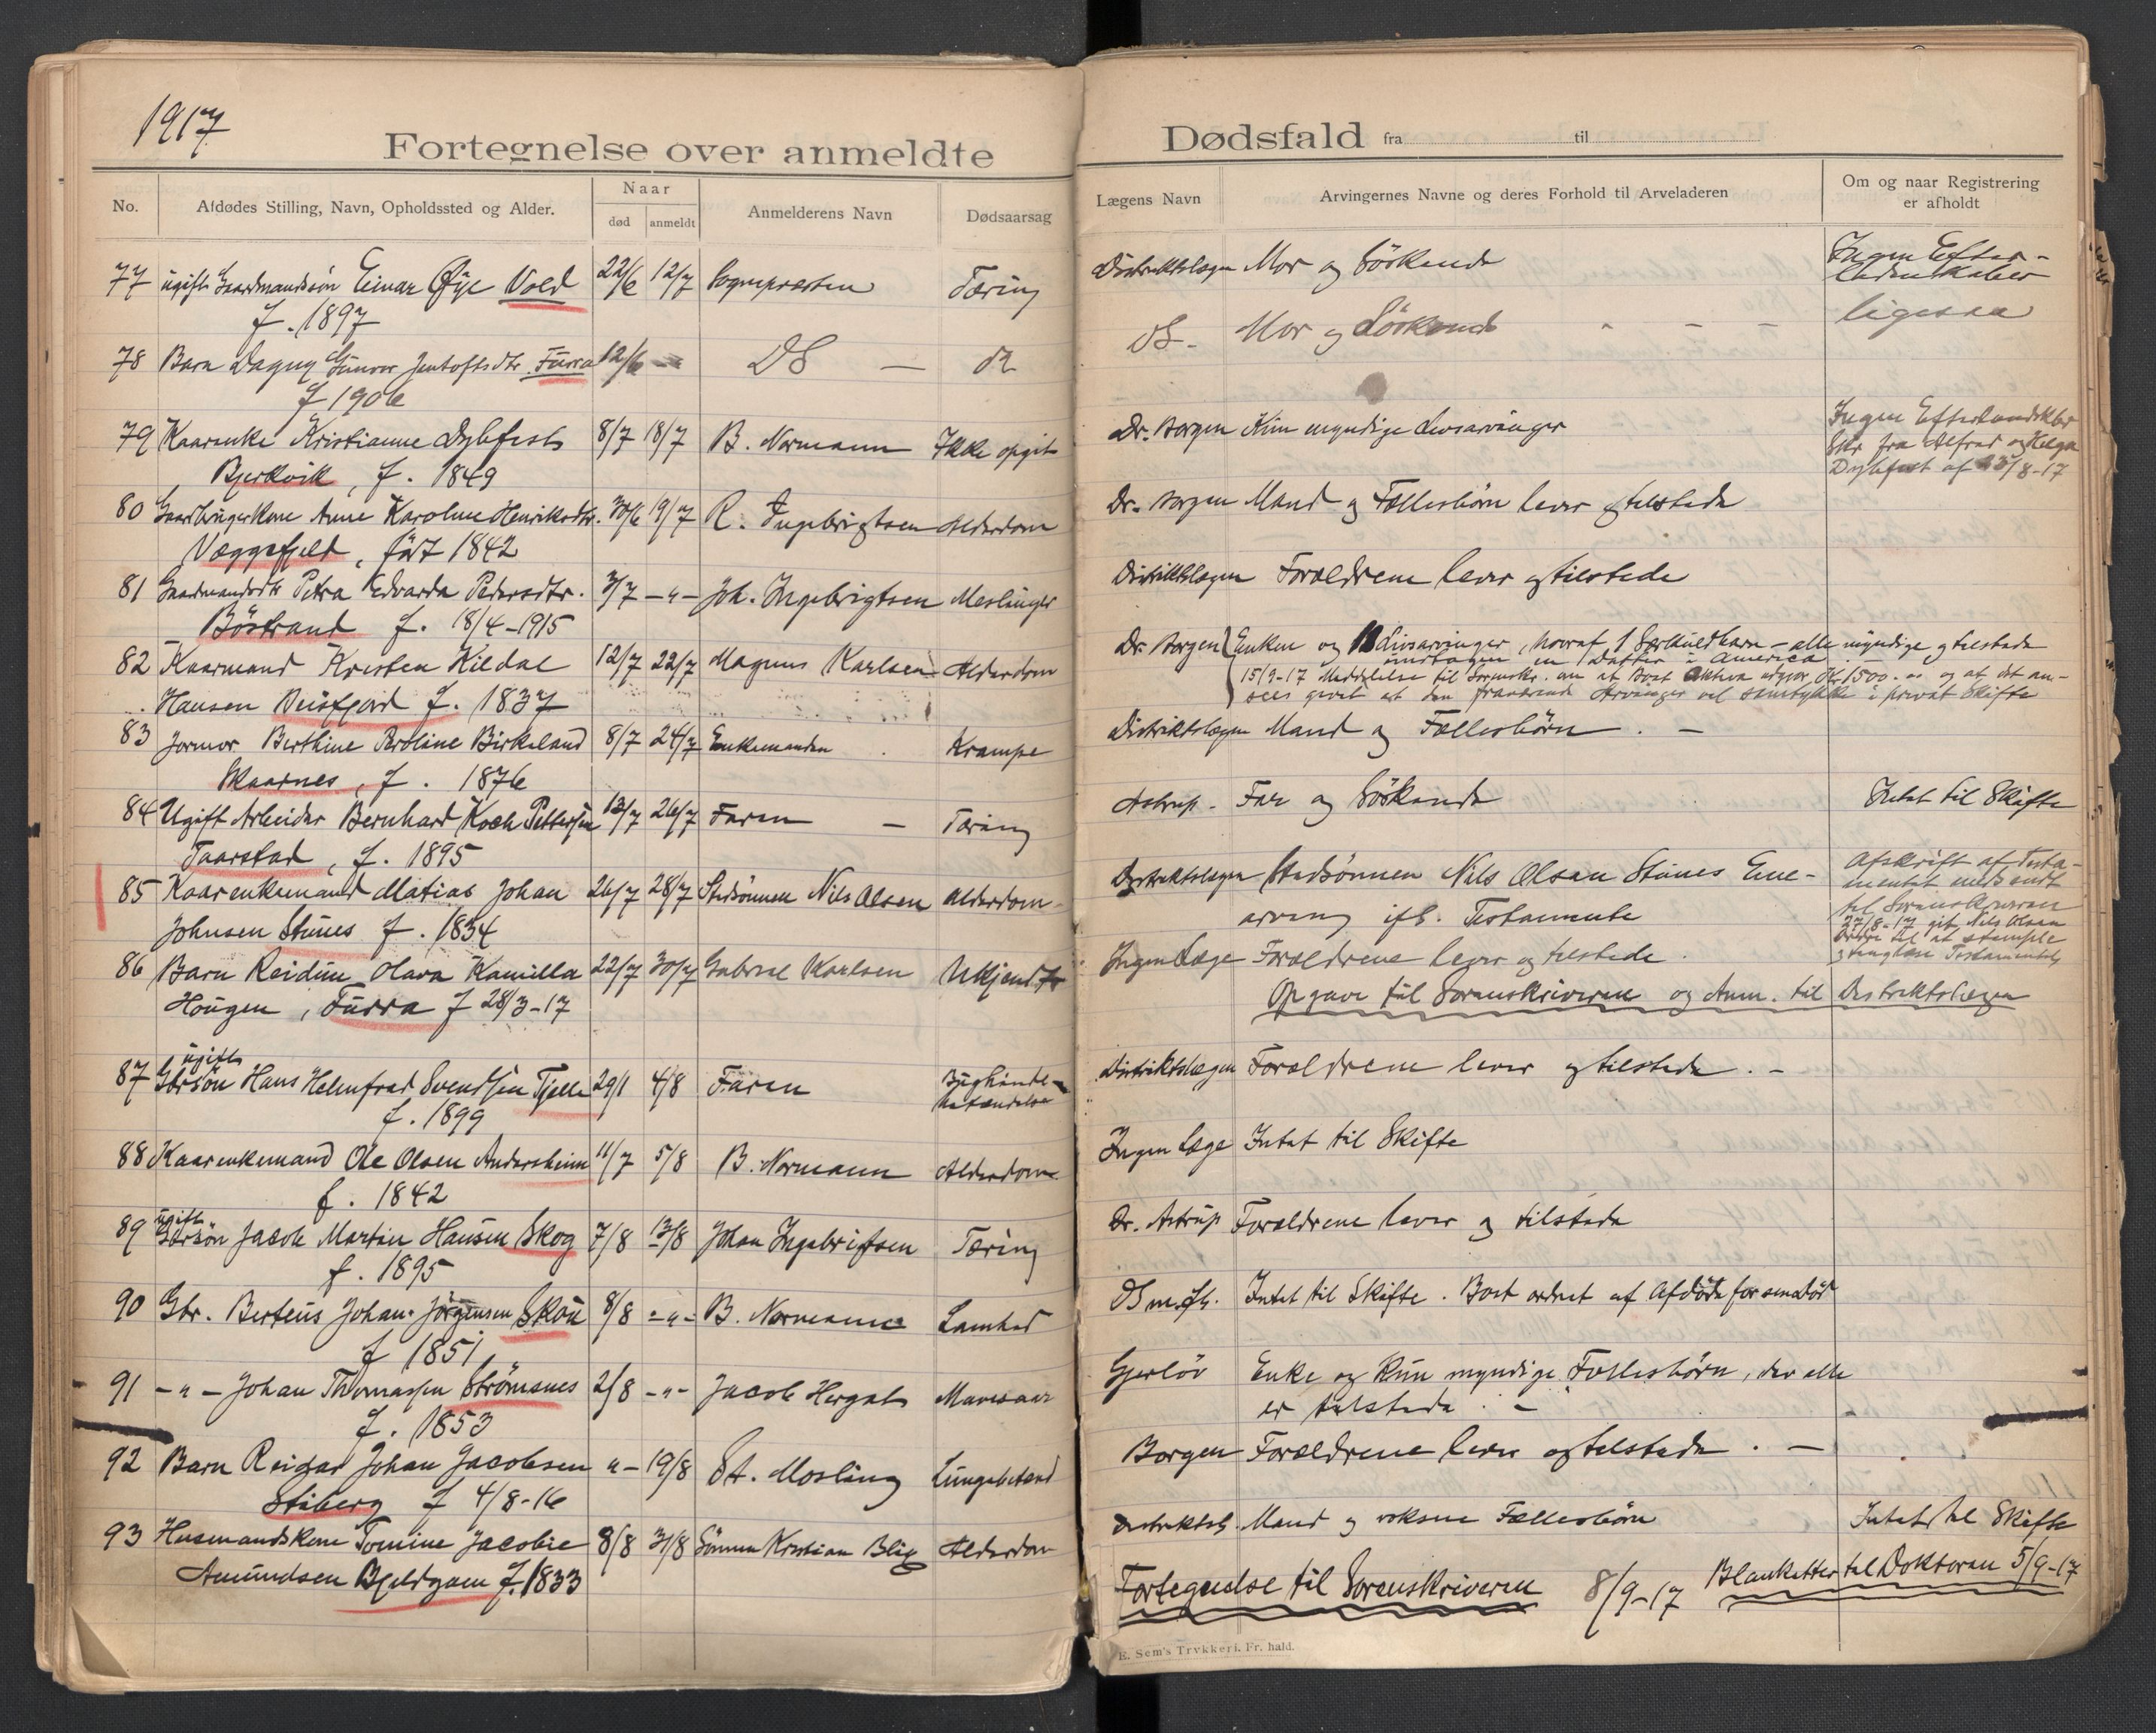 1917
Fortegnelse over anmeldte
No.
Afdødes Stilling, Navn, Opholdssted og Alder.
Naar
død
anmeldt
Anmelderens Navn
Dødsaarsag
77 ugift Gaardmandssøn Einar Øye Vold 22/6 12/7 Sognepresten Tæring
f. 1897
78 Barn Dagny Gunvor Jentoftsdtr. Furra 12/6 DS — ds
f 1906
79 Kaarenke Kristianne Dybfest 8/7 18/7 B. Normann Ikke opgit
Bjerkvik, f. 1849
80 Gaardbrugerkone Anne Karoline Henriksdtr. 30/6 19/7 R. Ingebrigtsen Alderdom
Væggefjeld, født 1842
81 Gaardmandsdtr Petra Edvarda Pedersdtr. 3/7 -"- Joh. Ingebrigtsen Meslinger
Böstrand f. 18/4-1915
82 Kaarmand Kristen Kildal 12/7 22/7 Magnus Karlsen Alderdom
Hansen Beisfjord f. 1837
83 Jormor Berthine Birkeland 8/7 24/7 Enkemanden Krampe
Skaarnes, f. 1876
84 Ugift Arbeider Bernhard Koch Pettersen 13/7 26/7 Faren — Tæring
Taarstad, f. 1895
85 Kaarenkemand Matias Johan 26/7 28/7 Stedsönnen Nils Olsen Alderdom
Johnsen Stunes f. 1834
86 Barn Reidun Olava Kamilla 22/7 30/7 Gabriel Karlsen Ukjendt
Hougen, Furra f 28/3-17
ugift
87 Gbrsön Hans Helmfrad Svendsen Tjelle 29/1 4/8 Faren Bughinde-
f. 1899 betændelse
88 Kaarenkemand Ole Olsen Andersheim 11/7 5/8 B. Normann Alderdom
f. 1842
ugift
89 Gbrsön Jacob Martin Hansen Skog 7/8 13/8 Johan Ingebrigtsen Tæring
f. 1895
90 Gbr. Berteus Johan Jörgensen Skou 8/8 -"- B. Normann Lamhed
f 1851
91 -"- Johan Thomassen Strömsnes 2/8 -"- Jacob Hergot Mavesaar
f. 1853
92 Barn Reidar Johan Jacobsen "- 19/8 St. Mosling Lungebetænd
Stiberg f 4/8-16
93 Husmandskone Tomine Jacobie 8/8 31/8 Sönnen Kristian Blix Alderdom
Amundsen f. 1833
Dødsfald fra til
Lægens Navn
Arvingernes Navne og deres Forhold til Arveladeren
Om og naar Registrering
er afholdt
Distriktslægen Mor og Söskende Ingen Efter-
ladenskaber
DS- Mor og Söskende " - - ligesaa
Dr. Borgen Kun myndige Livsarvinger Ingen Efterladskber
Skr fra Alfred og Helga
Dybfest af 23/8-17
Dr. Borgen Mand og Fællesbörn lever og tilstede
Distriktslægen Forældrene lever og tilstede
Dr. Borgen Enken og Livsarvinger, hvoraf 1 Særkuldbarn - alle myndige og tilstede
undtagen en Datter i America
15/9-17 Meddelelse til Sorenskr. om at Boet Aktiva udgjør Kr 1500.- og at det an-
sees givet at den fraværende Arvinger vil samtykke i privat Skifte
Distriktslægen Mand og Fællesbörn. -
Astrup- Far og Söskende Intet til Skifte
Distriktslægen Stedsönnen Nils Olsen Stunes Ene-
arving ifl. Testamente
Afskrift af Testa-
mentet indsendt
til Sorenskriveren
27/8-17 git Nils Olsen
Ordre til at stemple
og tinglæse Testamentet
Ingen Læge Forældrene lever og tilstede.
Opgave til Sorenskriveren og Anm. til Distriktslægen
Distriktslægen Forældrene lever og tilstede. -
Ingen Læge Intet til Skifte
Dr. Astrup Forældrene lever og tilstede
Intet til Skifte. Boet ordnet af Afdöde for sin död
Gjerlöv Enke og kun myndige Fællesbörn, der alle
er tilstede. -
Borgen Forældrene lever og tilstede. -
Distriktsl. Mand og voksne Fællesbörn Intet til Skifte
Fortegnelse til Sorenskriveren 8/9-17 Blanketter til Doktoren 5/9-17
E. Sem's Trykkeri, Fr. hald.